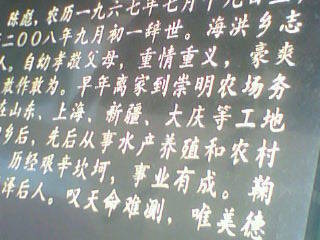 陈彪，农历一九六七年七月十九日
二00八年九月初一辞世。海洪乡志
人，自幼孝敬父母，重情重义，豪爽
敢作敢为。早年离家到崇明农场务
在山东、上海、新疆、大庆等工地
乡后，先后从事水产养殖和农村
历经艰辛坎坷，事业有成。鞠
泽后人。叹天命难测，唯美德